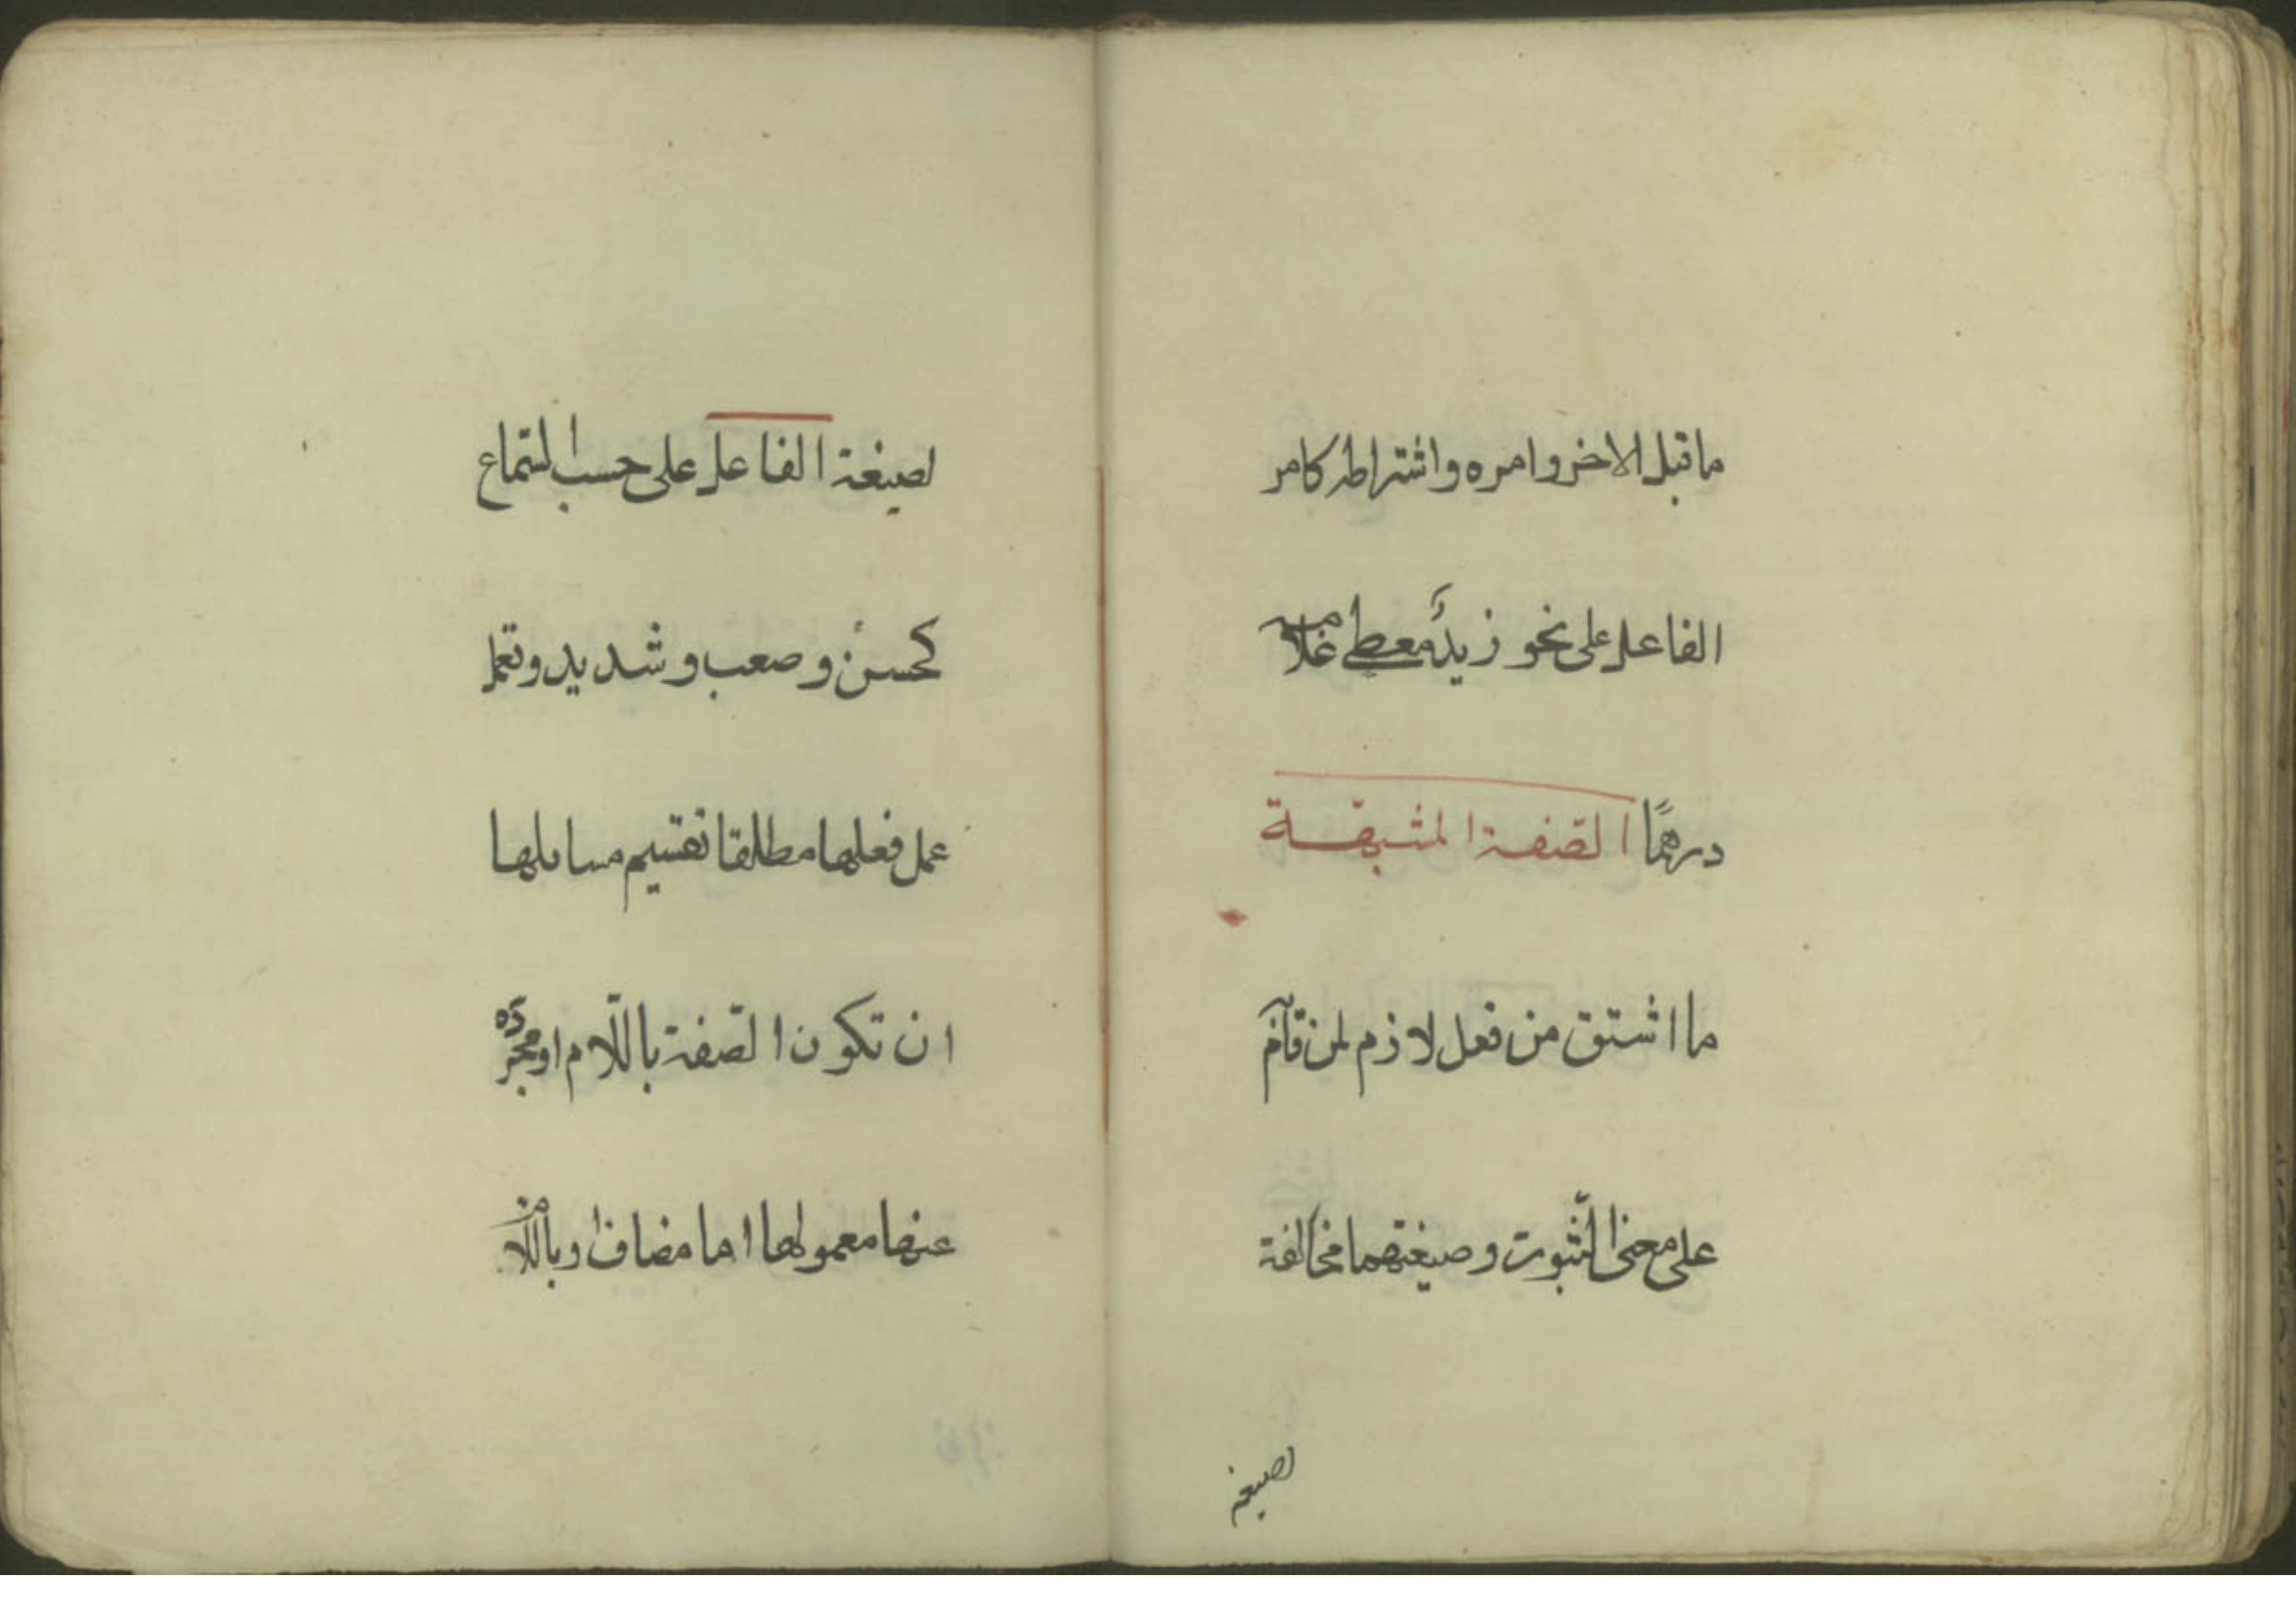 ما قبل الاخر وامره واشتراطه كامر
الفاعل على نحو زيدٌ معطى غلامه
درهمًا الصّفة المشبّهة
ما اشتق من فعل لازم لمن قام
على معنى الثّبوت وصيغتهما مخالفة
لصيغه
لصيغة الفاعل على حسب السّماع
كحسن وصعب وشديد وتعمل
عمل فعلها مطلقا تقسيم مسايلها
ان تكون الصّفة باللّام او مجرّده
عنها معمولها اما مضاف او باللّام